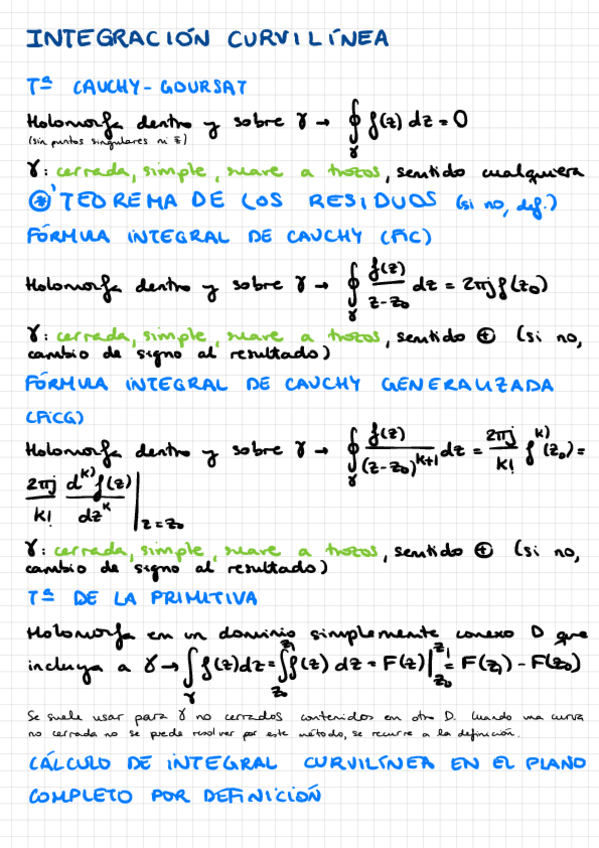 INTEGRACIÓN CURVILÍNEA
Tª CAUCHY-GOURSAT
Holomorfa dentro y sobre γ → ∮γ f(z) dz = 0
(sin puntos singulares ni z̄)
γ: cerrada, simple, suave a trozos, sentido cualquiera
⊛' TEOREMA DE LOS RESIDUOS (si no, def.)
FÓRMULA INTEGRAL DE CAUCHY (FIC)
Holomorfa dentro y sobre γ → ∮γ f(z)/(z-z₀) dz = 2πj f(z₀)
γ: cerrada, simple, suave a trozos, sentido ⊕ (si no,
cambio de signo al resultado)
FÓRMULA INTEGRAL DE CAUCHY GENERALIZADA
(FICG)
Holomorfa dentro y sobre γ → ∮γ f(z)/(z-z₀)^(k+1) dz = 2πj/k! f^k)(z₀) =
2πj/k! d^k) f(z)/dz^k |z=z₀
γ: cerrada, simple, suave a trozos, sentido ⊕ (si no,
cambio de signo al resultado)
Tª DE LA PRIMITIVA
Holomorfa en un dominio simplemente conexo D que
incluya a γ → ∫γ f(z)dz = ∫z₀^z₁ f(z) dz = F(z)|z₀^z₁ = F(z₁) - F(z₀)
Se suele usar para γ no cerrados contenidos en otro D. Cuando una curva
no cerrada no se puede resolver por este método, se recurre a la definición.
CÁLCULO DE INTEGRAL CURVILÍNEA EN EL PLANO
COMPLETO POR DEFINICIÓN